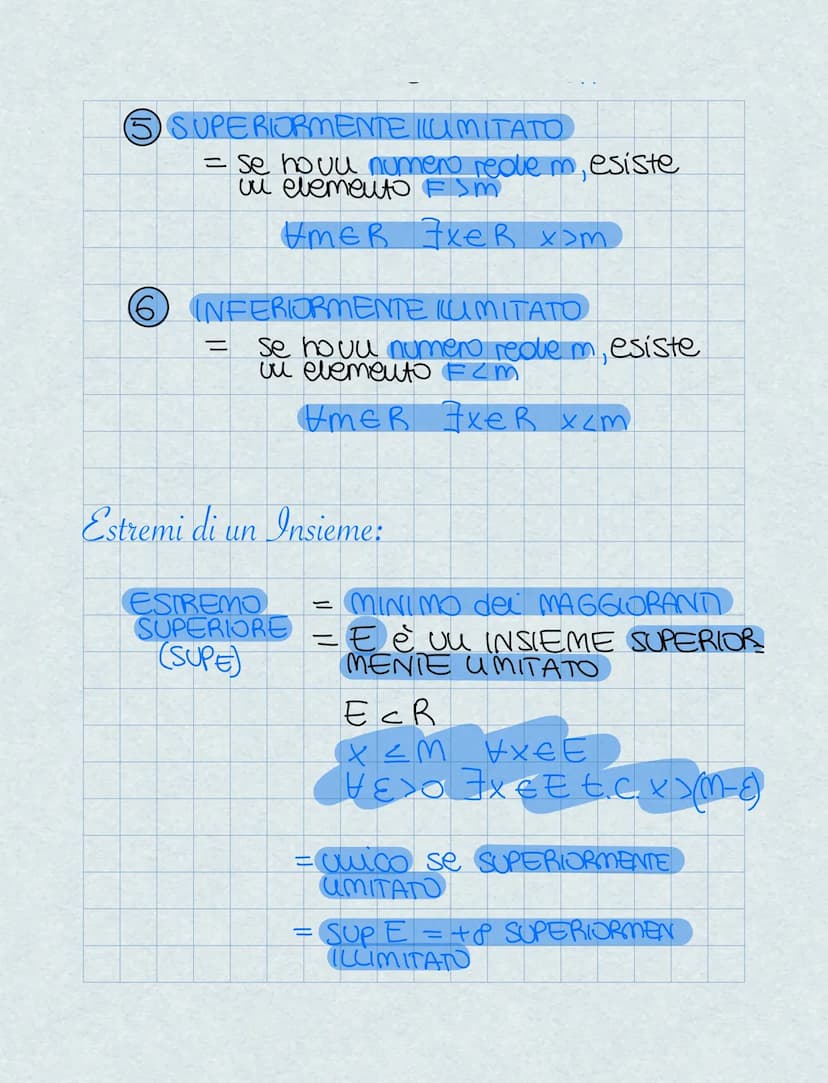 5 SUPERIORMENTE ILLIMITATO
= se ho un numero reale m, esiste
un elemento E > m
∀m∈R ∃x∈R x>m
6 INFERIORMENTE ILLIMITATO
= se ho un numero reale m, esiste
un elemento E < m
∀m∈R ∃x∈R x<m
Estremi di un Insieme:
ESTREMO
SUPERIORE
(SUP E)
= MINIMO dei MAGGIORANTI
= E è un INSIEME SUPERIOR
MENTE LIMITATO
E ⊂ R
x ≤ M ∀x∈E
∀ε>0 ∃x∈E t.c. x>(M-ε)
= unico se SUPERIORMENTE
LIMITATO
= SUP E = +∞ SUPERIORMEN
ILLIMITATO